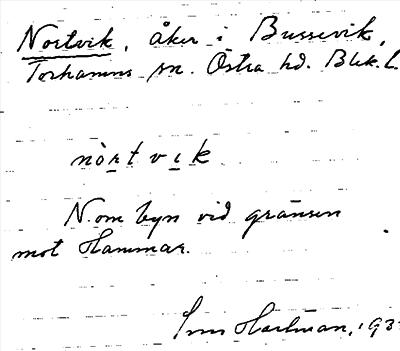 Nortvik, åker i Bussevik,
Torhamns sn. Östra hd. Blek. l.
nòrtvik
N. om byn vid gränsen
mot Hammar.
Hartman, 193